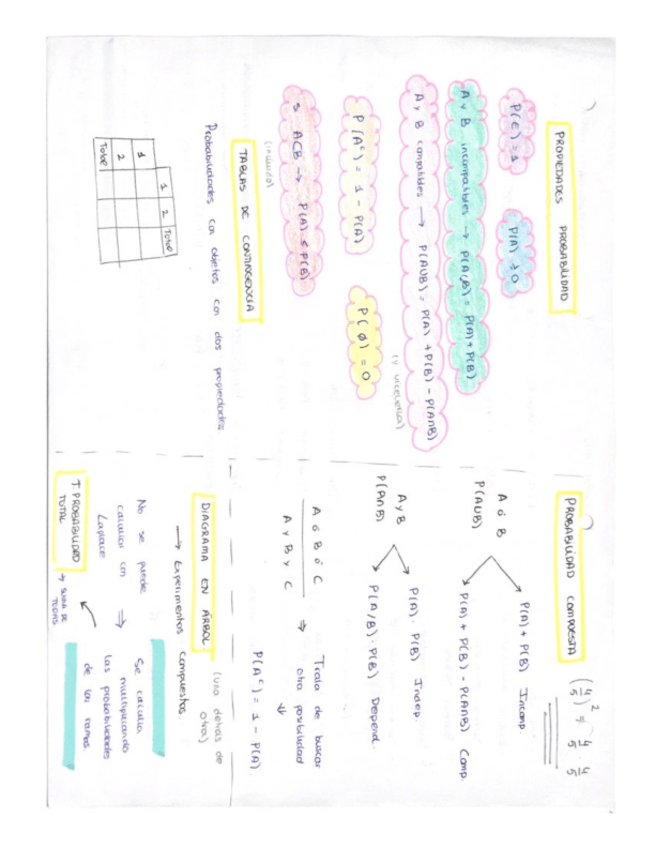 PROPIEDADES PROBABILIDAD
P(E) = 1
P(A) ≥ 0
A y B incompatibles → P(A∪B) = P(A) + P(B)
A y B compatibles → P(A∪B) = P(A) + P(B) - P(A∩B)
(y viceversa)
P(Aᶜ) = 1 - P(A)
P(ø) = 0
s ACB → P(A) ≤ P(B)
(incluido)
TABLAS DE CONTINGENCIA
Probabilidades con objetos con dos propiedades
1 2 Total
1
2
Total
PROBABILIDAD COMPUESTA
(4/5)² = 4/5 · 4/5
A ó B
P(A∪B)
P(A) + P(B) Incomp.
P(A) + P(B) - P(A∩B) Comp.
A y B
P(A∩B)
P(A) · P(B) Indep.
P(A/B) · P(B) Depend.
A ó B ó C
A y B y C
⇒ Trata de buscar
otra posibilidad
⇓
P(Aᶜ) = 1 - P(A)
DIAGRAMA EN ÁRBOL (uno detrás de
otro)
→ Experimentos compuestos
No se puede
calcular con ⇒
Laplace
Se calcula
multiplicando
las probabilidades
de las ramas
T. PROBABILIDAD
TOTAL
→ SUMA DE
TODAS